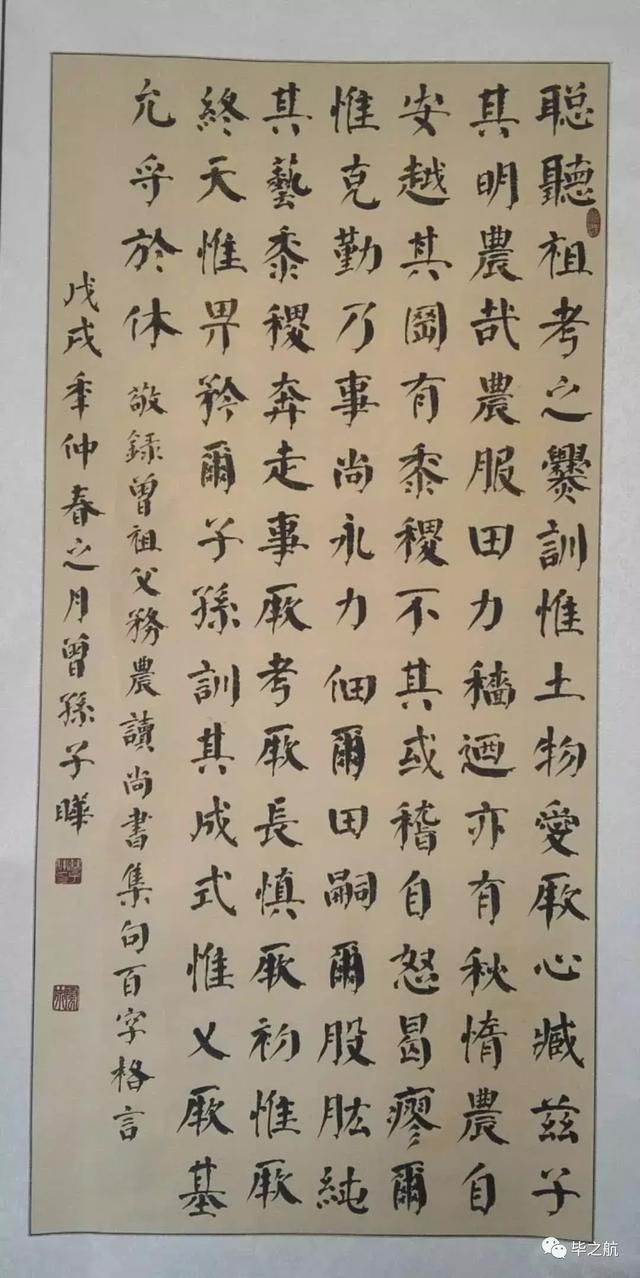 聪聽祖考之爨訓惟土物愛厥心臧茲子
其明農哉農服田力穡迺亦有秋惰農自
安越其罔有黍稷不其或稽自怒曷瘳爾
惟克勤乃事尚永力佃爾田嗣爾股肱純
其藝黍稷奔走事厥考厥長慎厥初惟厥
終天惟畀矜爾子孫訓其成式惟乂厥基
允孚於休
敬録曾祖父務農讀尚書集句百字格言
戊戌年仲春之月曾孫子曄
毕之航